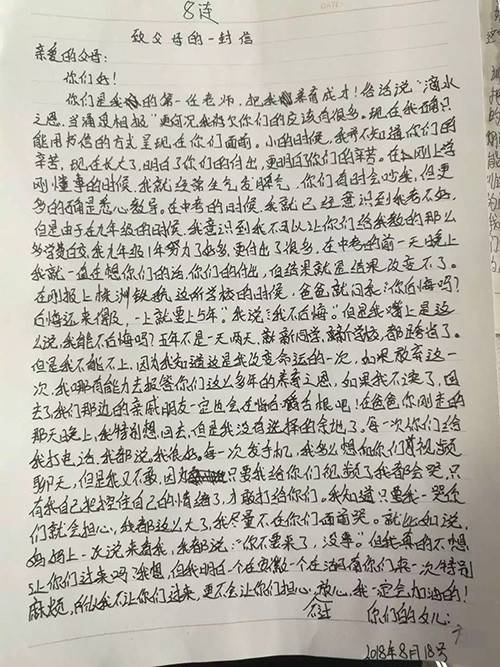 8连
致父母的一封信
亲爱的父母:
你们好!
你们是我的第一任老师,把我养育成才!俗话说“滴水
之恩,当涌泉相报”更何况我对欠你们的应该有很多。现在我确只
能用书信的方式呈现在你们面前。小的时候,我并不知道你们的
辛苦,现在长大了,明白了你们的付出,更明白了你们的辛苦。在刚上学
刚懂事的时候,我就经常生气发脾气,你们有时会吵我,但更
多的确是悉心教导。在中考的时候,我就已经意识到我考不好,
但是由于在九年级的时候,我意识到我不可以让你们给我教的那么
多学费白交,我九年级1年努力了好多,更付出了很多,在中考的前一天晚上
我就一直在想你们的话,你们的付出,但结果就是结果改变不了。
在刚报上株洲铁航这所学校的时候,爸爸就问我:“你后悔吗?
后悔还来得及,一上就要上5年。”我说:“我不后悔。”但是我嘴上是这
么说,我能不后悔吗?五年不是一天两天,就新同学,新学校,都够当了。
但是我不能不上,因为我知道这是我改变命运的一次,如果放弃这一
次,我哪有能力去报答你们这么多年的养育之恩,如果我不读了,回
去了我们那边的亲戚朋友一定也会在背后嚼舌根吧!在爸爸,你刚走的
那天晚上,我特别想回去,但是我没有选择的余地了,每一次你们给
我打电话,我都说我很好。每一次发手机,我多么想和你们视频
聊天,但是我又不敢,因为只要我给你们视频了我都会哭,只
有我自己把控住自己的情绪了,才敢打给你们。我知道只要我一哭你
们就会担心,我都这么大了,我尽量不在你们面前哭。就比如说,
妈妈上一次说来看我,我都说:“你不要来了,没事。”但我真的不想
让你们过来吗?我想,但我明白一个在安徽一个在湖南你们来一次特别
麻烦,所以我不让你们过来,更不会让你们担心,放心,我一定会加油的!
你们的女儿:
2018年8月18号